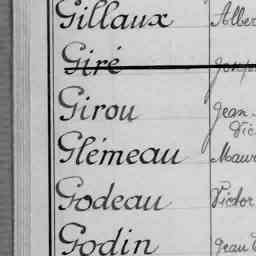 Gillaux Alber
Giré
Girou Jean
Vic
Glémeau Maur
Godeau Victor
Godin Jean